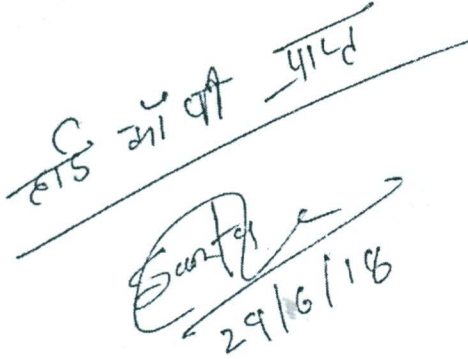 हार्ड कॉपी प्राप्त
29/6/18